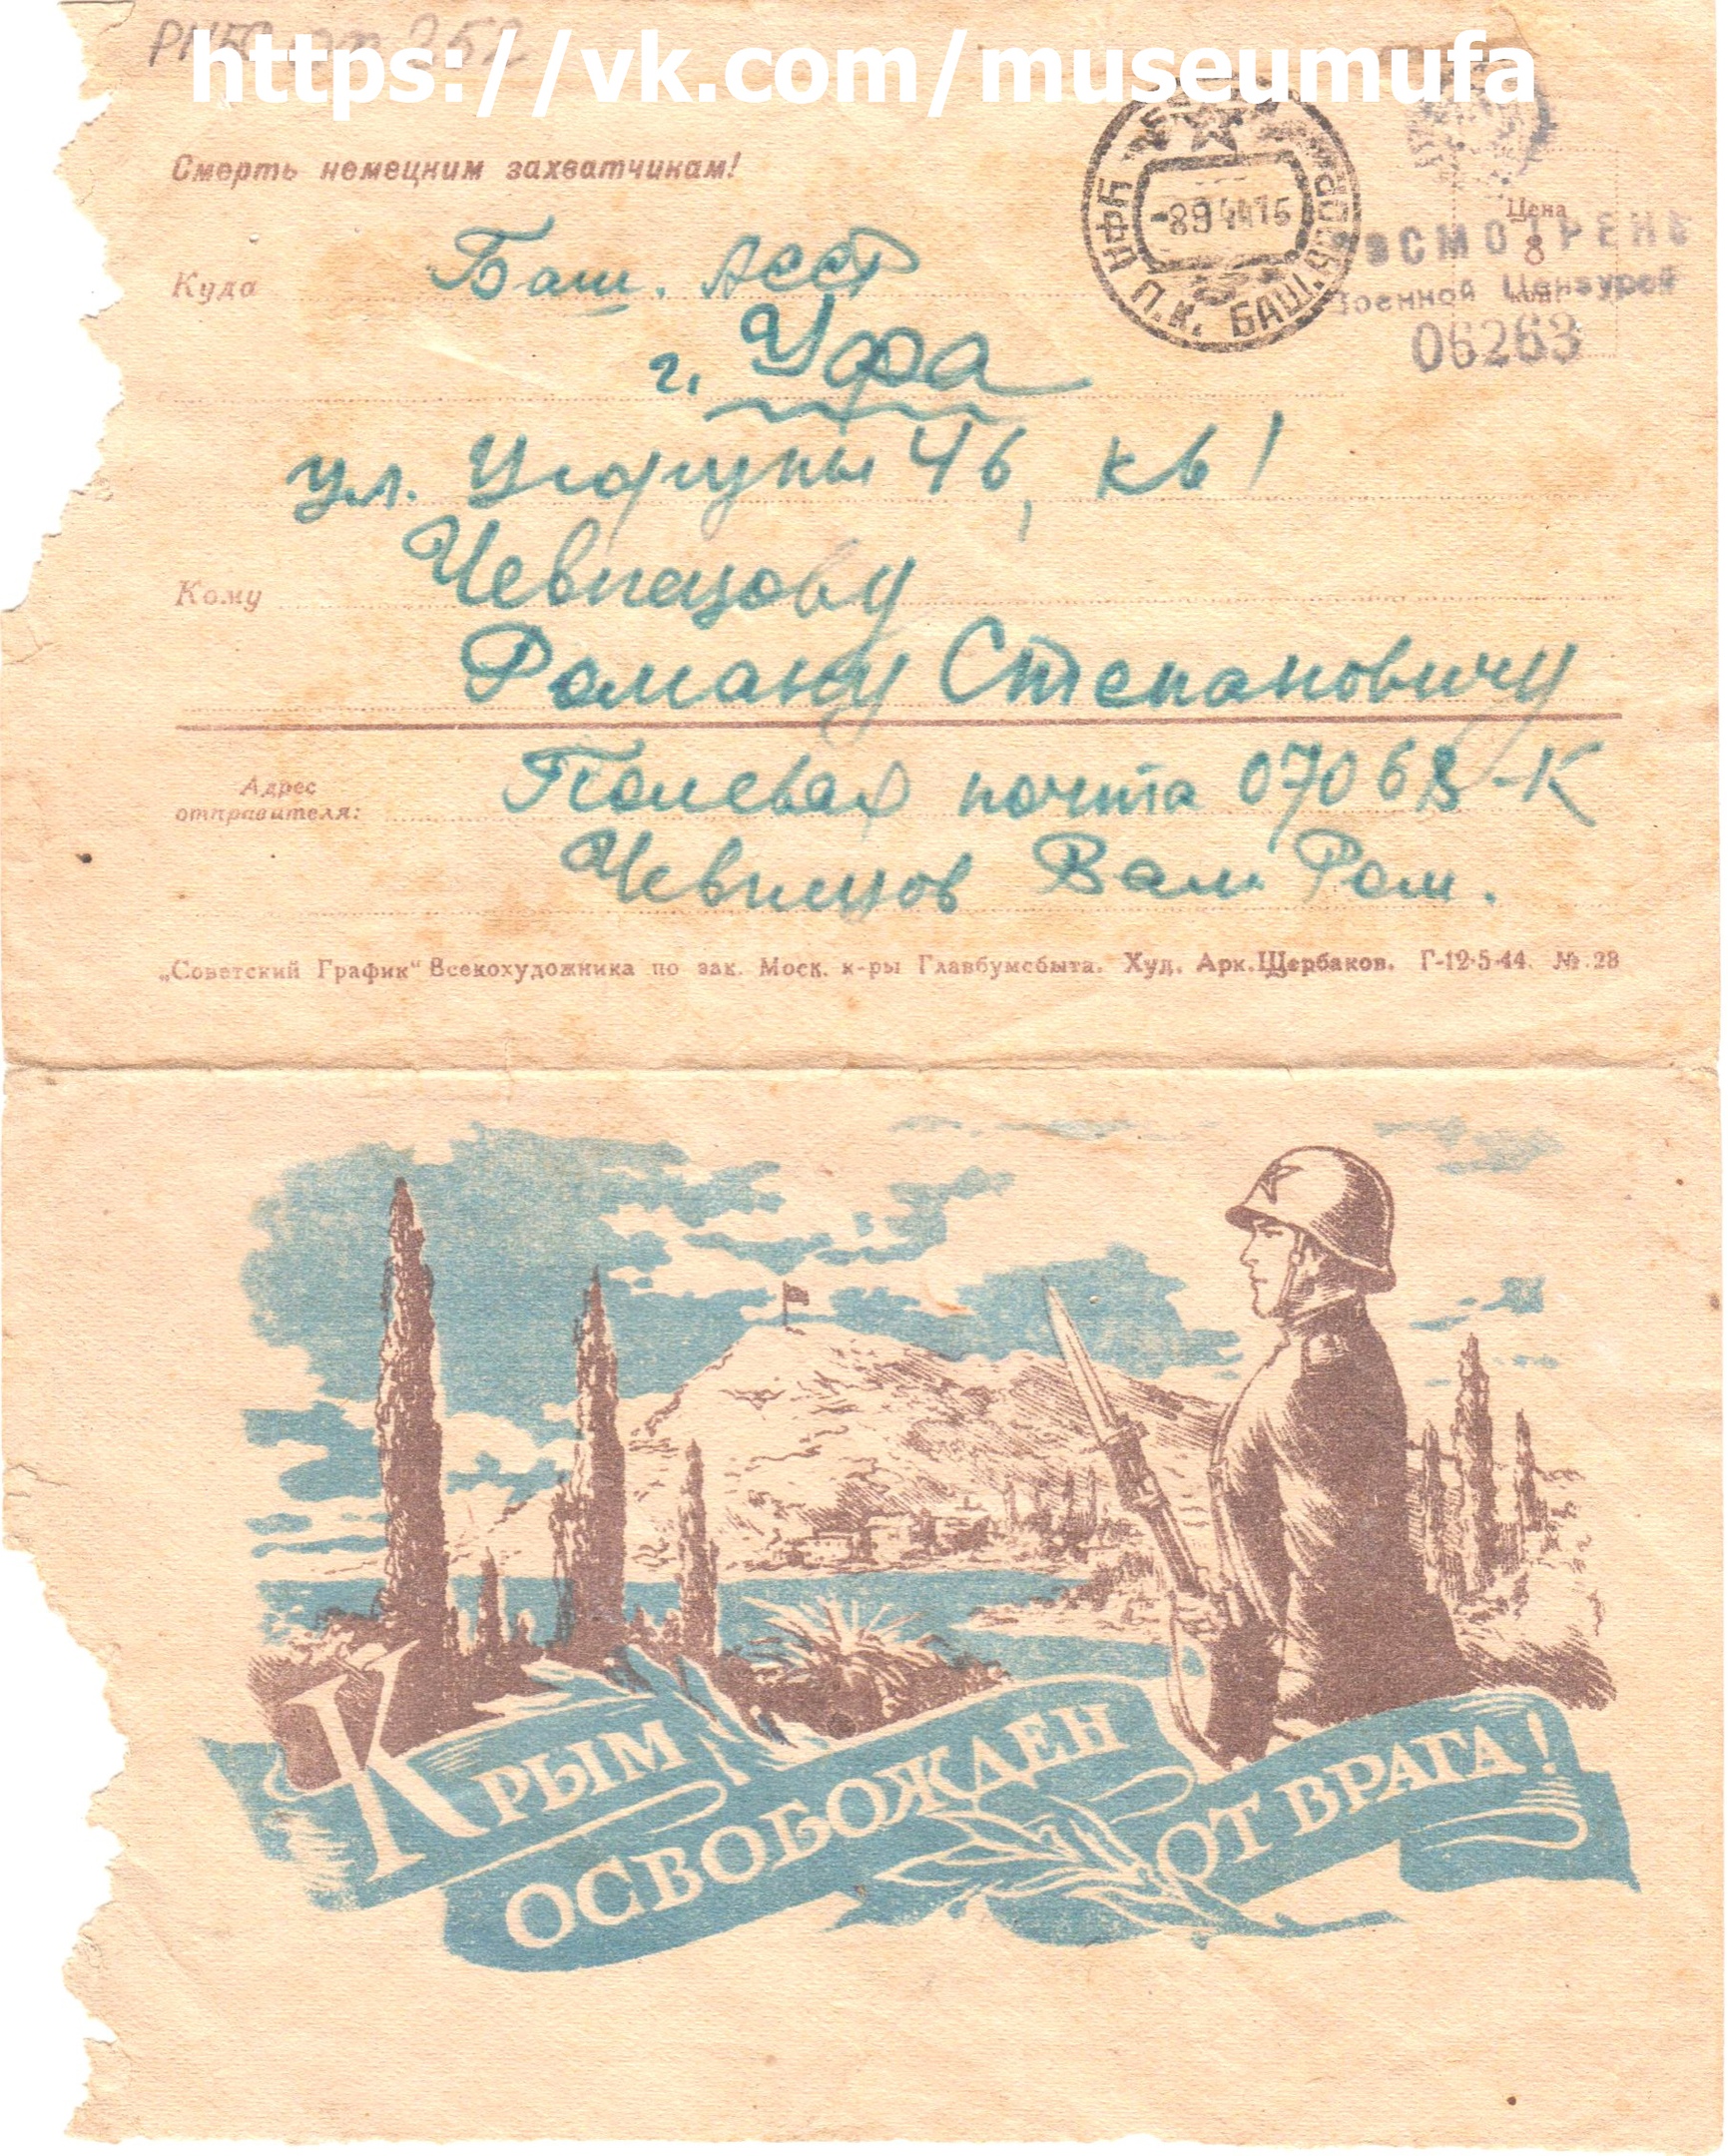 https://vk.com/museumufa
Смерть немецким захватчикам!
УФА
П.К. БАШ.
-8 9 44 16
Цена
8
коп.
ПРОСМОТРЕНО
Военной Цензурой
06263
Куда Баш. АССР
г. Уфа
ул. 46, кв 1
Кому
Роману Степановичу
Адрес
отправителя:
Полевая почта 07068-К
Ром.
„Советский График“ Всекохудожника по зак. Моск. к-ры Главбумсбыта. Худ. Арк. Щербаков. Г-12-5-44. № 28
КРЫМ
ОСВОБОЖДЕН
ОТ ВРАГА!